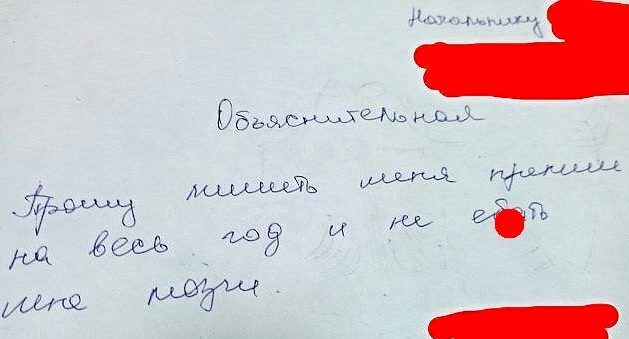 Начальнику
Объяснительная
Прошу лишить меня премии
на весь год и не
мне мозги.